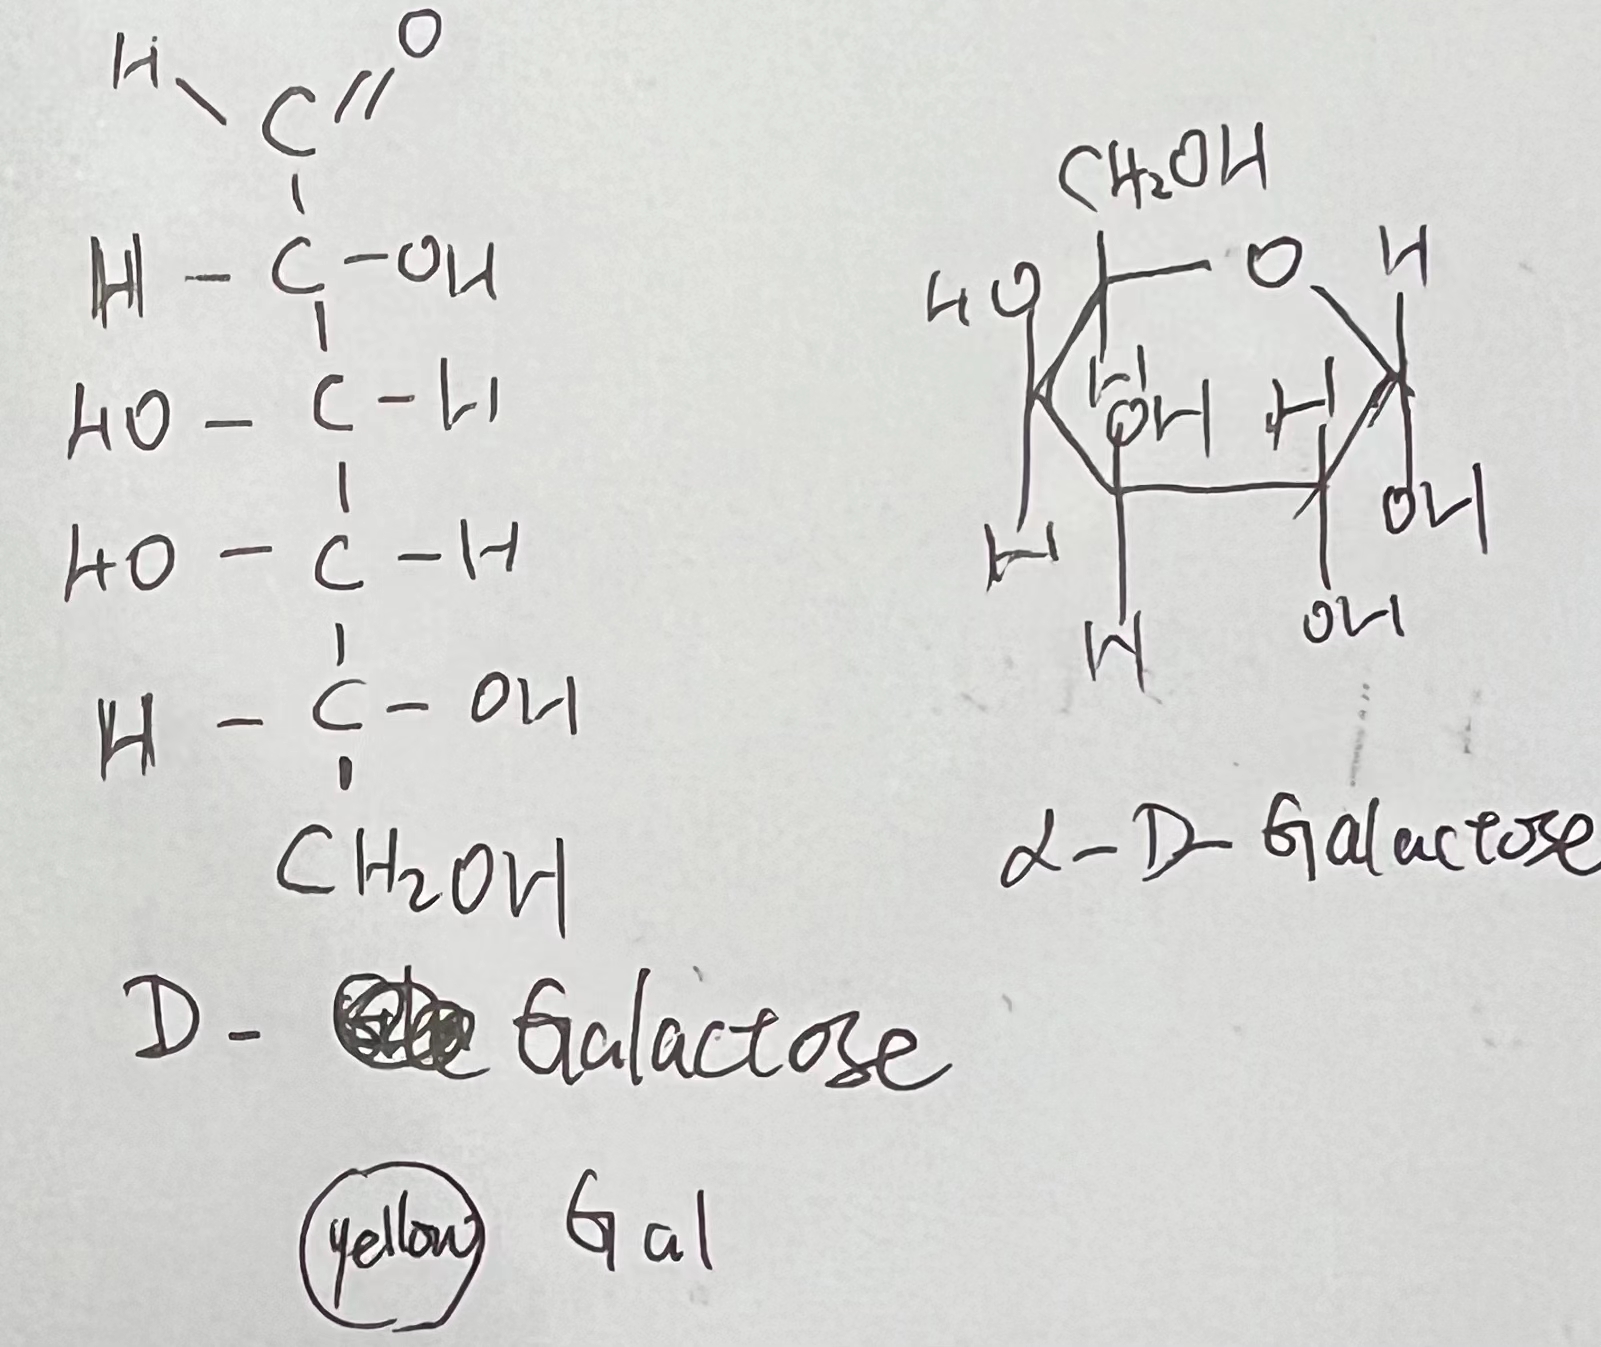 H O
C
H - C - OH
HO - C - H
HO - C - H
H - C - OH
CH₂OH
D- Galactose
yellow Gal
CH₂OH
HO O H
H
OH H
OH
H
H OH
α-D-Galactose